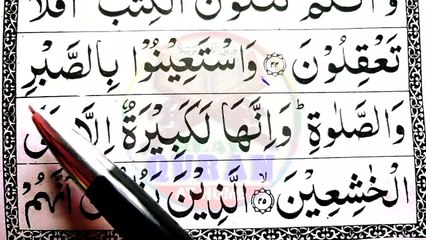 وَاَنْتُمْ تَتْلُوْنَ الْكِتٰبَ اَفَلَا
تَعْقِلُوْنَ ﴿۴۴﴾ وَاسْتَعِيْنُوْا بِالصَّبْرِ
وَالصَّلٰوةِ ؕ وَاِنَّهَا لَكَبِيْرَةٌ اِلَّا
الْخٰشِعِيْنَ ﴿۴۵﴾ الَّذِيْنَ اَنَّهُمْ
QURAN